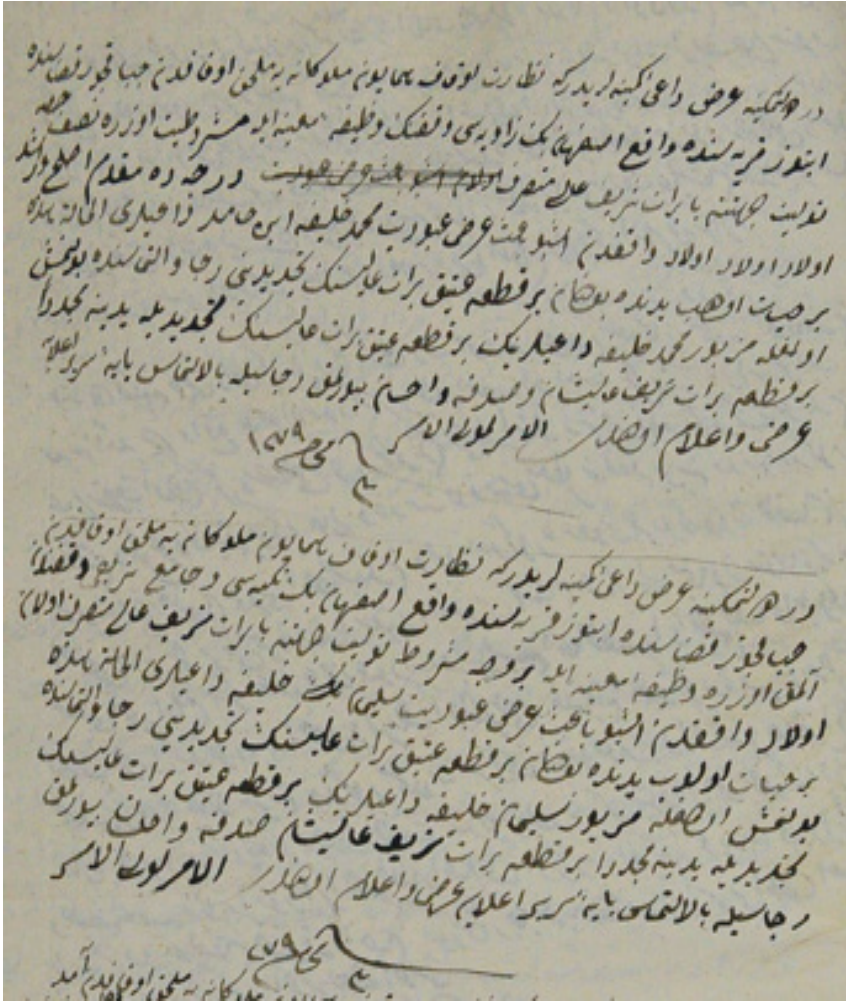 در عدلتمكينه عرض داعی كمینه لریدر كه نظارت اوقاف همایون ملوكانه یه ملحق اوقافدن قضاسنده
قریه سنده واقع اصفهان بك زاویه سی وقفنك وظیفۀ معینه ایله مشروطیت اوزره نصف حصه
تولیت جهتنه با برات شریف عالی متصرف درجه ده مقدم اصلح
اولاد اولاد اولاد واقفدن اشبو باعث عرض عبودیت محمد خلیفه ابن حامد داعیلری الحالة هذه
بر حیات اولوب یدنده بولنان بر قطعه عتیق برات عالیسنك تجدیدینی رجا والتماسنده بولنمش
اولمغله مزبور محمد خلیفه داعیلرینك بر قطعه عتیق برات عالیسنك تجدیدیله یدینه مجددا
بر قطعه برات شریف عالیشان صدقه واحسان بیورلمق رجاسیله بالالتماس پایۀ سریر اعلایه
عرض واعلام اولندی الامر لمولی الامر
در عدلتمكینه عرض داعی كمینه لریدر كه نظارت اوقاف همایون ملوكانه یه ملحق اوقافدن
قضاسنده قریه سنده واقع اصفهان بك تكیه سی وجامع شریف وقفندن
آلمق اوزره وظیفۀ معینه ایله بر وجه مشروط تولیت جهتنه با برات شریف عالی متصرف اولان
اولاد واقفدن اشبو باعث عرض عبودیت سلیمان خلیفه داعیلری الحالة هذه
بر حیات اولوب یدنده بولنان بر قطعه عتیق برات عالیسنك تجدیدینی رجا والتماسنده
بولنمش اولمغله مزبور سلیمان خلیفه داعیلرینك بر قطعه عتیق برات عالیسنك
تجدیدیله یدینه مجددا بر قطعه برات شریف عالیشان صدقه واحسان بیورلمق
رجاسیله بالالتماس پایۀ سریر اعلایه عرض واعلام اولندی الامر لمولی الامر